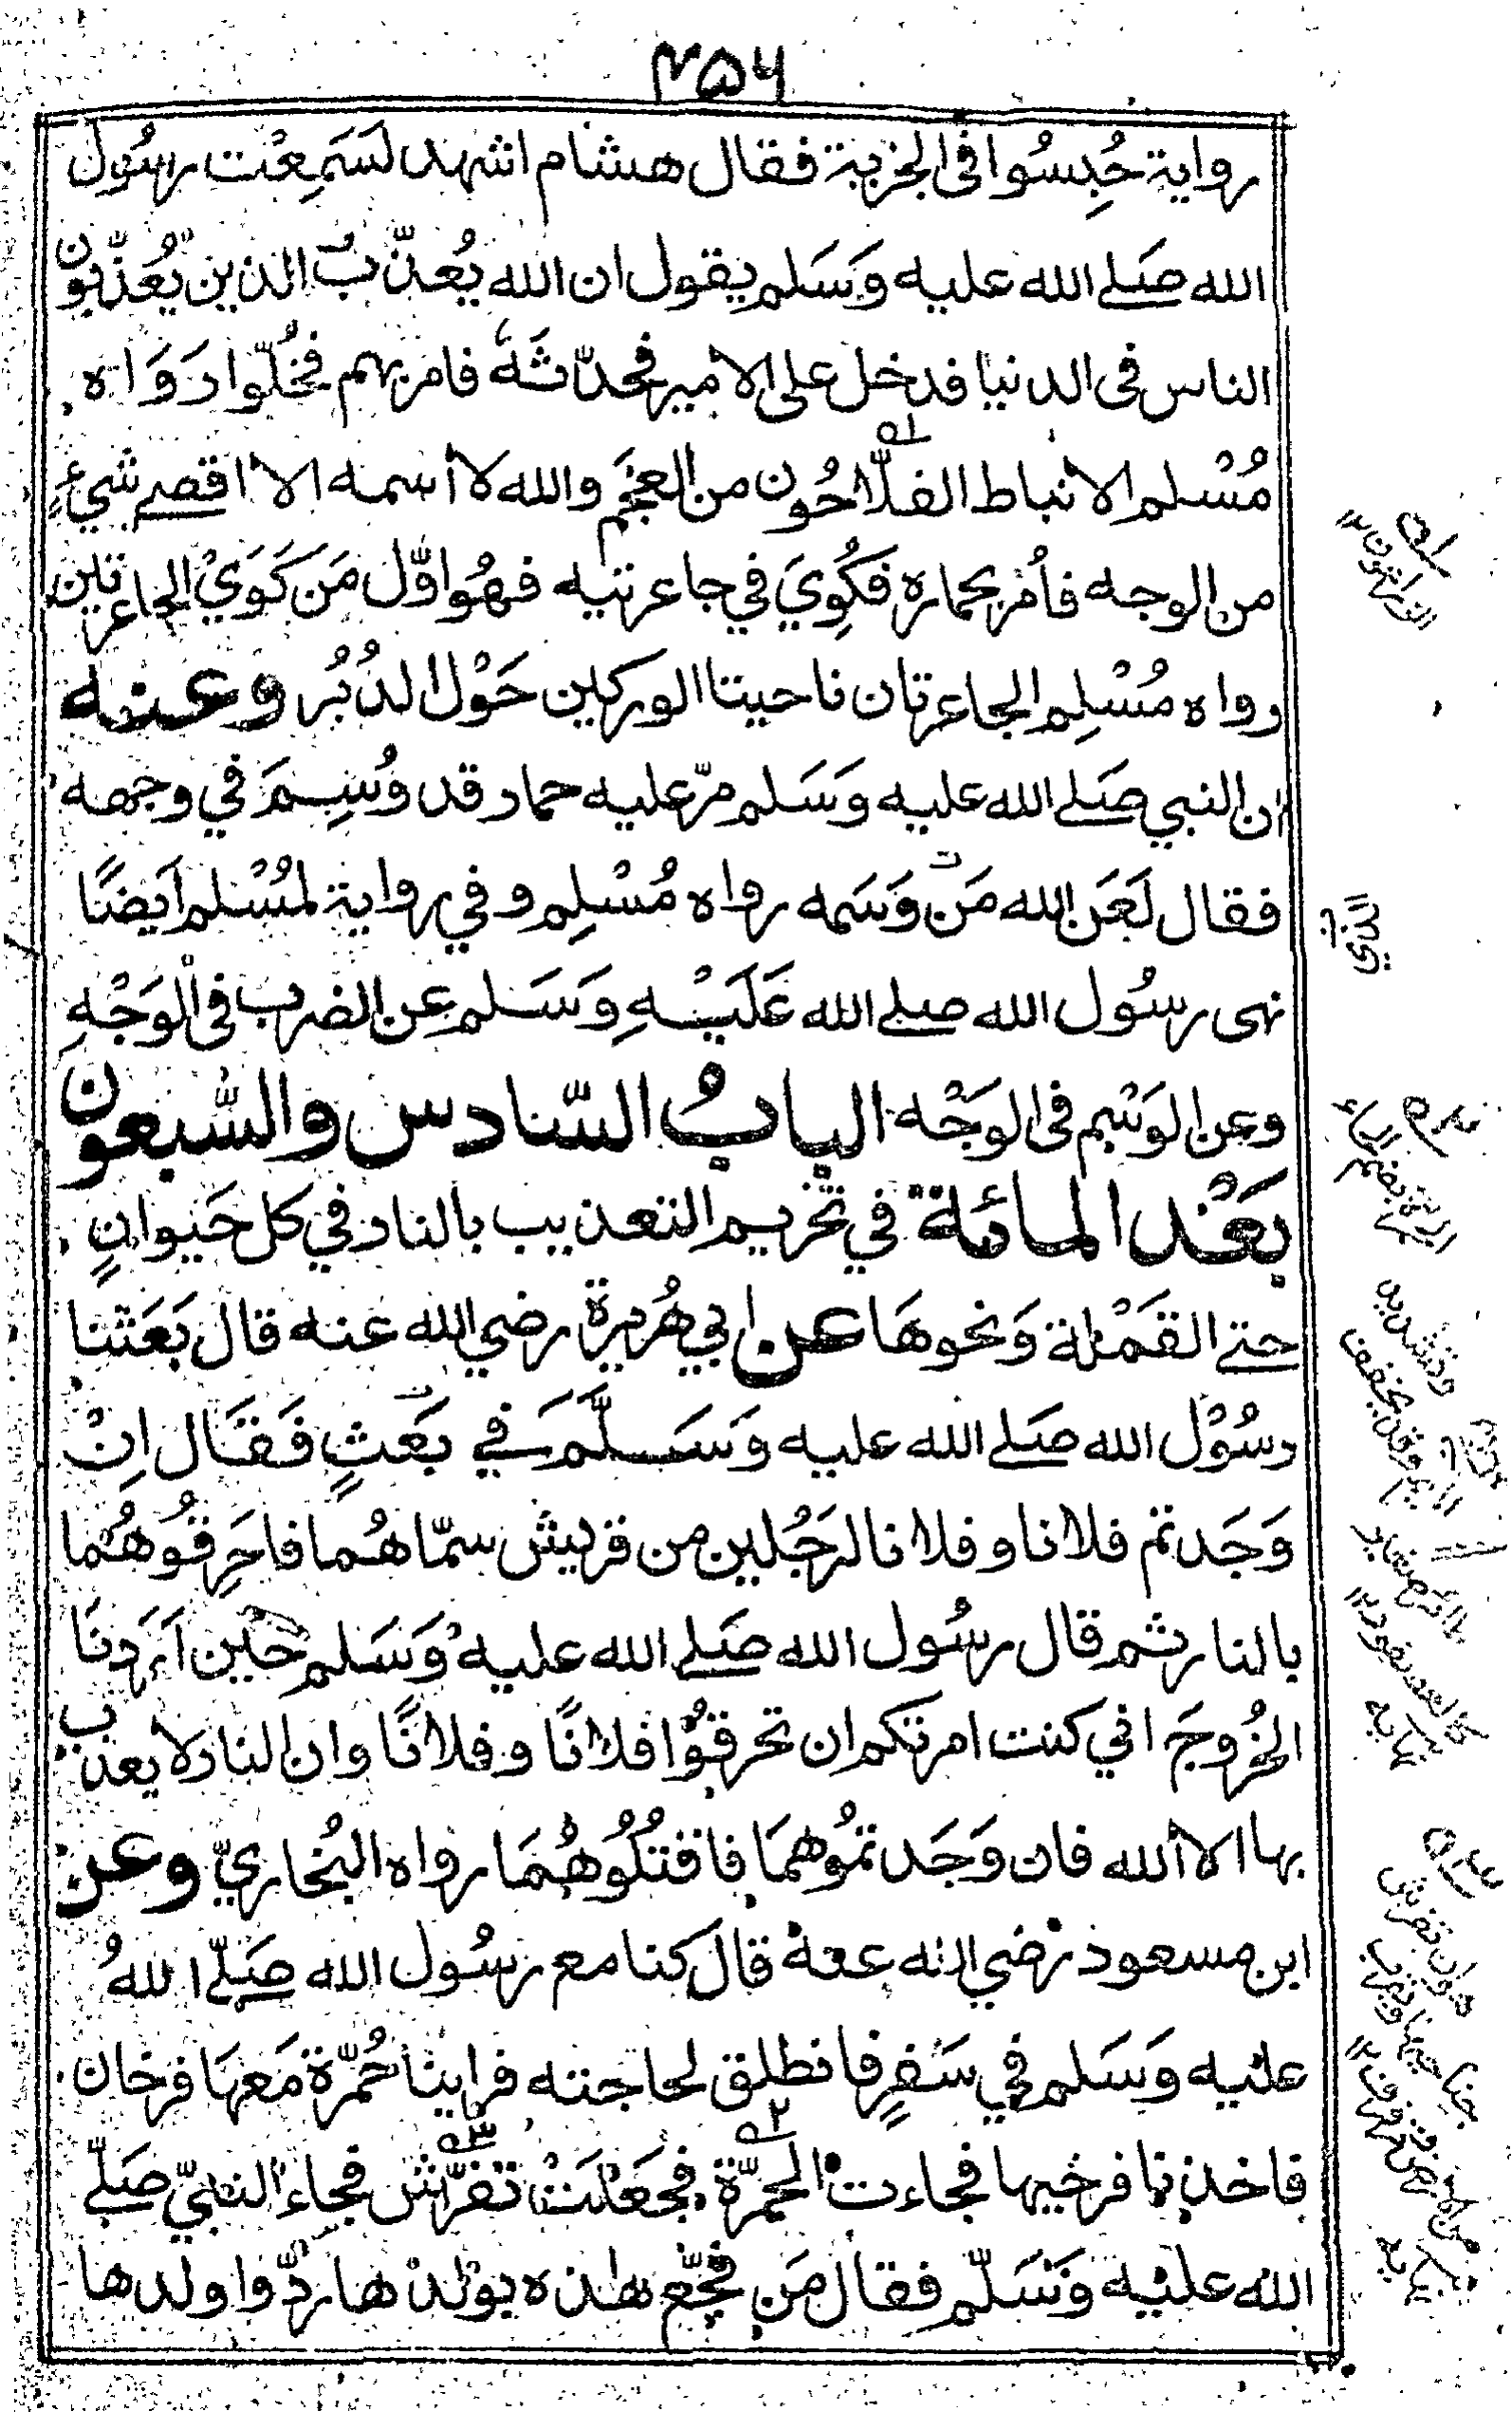 ۴۵۶
رواية حُبِسُوا فى الجزية فقال هشام اشهد لسَمِعْت رسُول
الله صَلے الله عليه وَسَلم يقول ان الله يُعذّبُ الذين يُعذّبون
الناس فى الدنيا فدخل على الامير فحدّثَهٗ فامر بهم فخُلّوا رَوَاه
مُسْلم الانباط الفلّاحُون من العجَم والله لا أسمه الا اقصے شيءٍ
من الوجه فأمر بحماره فكُوِيَ في جاعرتيه فهُو اوّل مَن كَوَيْ الجاعرتين
رواه مُسْلِم الجاعرتان ناحيتا الوركين حَوْل الدُبُر وعنه
ان النبي صَلے الله عليه وَسَلم مرّ عليه حمار قد وُسِمَ في وجهه
فقال لَعَن الله مَن وَسَمه رواه مُسْلِم وفي رواية لمُسْلم اَيضًا
نهى رسُول الله صلے الله عَلَيْهِ وَسَلم عن الضرب فى الوَجْهِ
وعن الوَسْم فى الوَجْه البابُ السّادس والسّبعون
بَعْد المائة في تحريم التعذيب بالنار في كل حَيوانٍ
حتے القَمْلة وَنحوهَا عن ابي هُريرة رضي الله عنه قال بَعَثنا
رسُوْل الله صَلے الله عليه وَسَلَّمَ في بَعَثٍ فَقَال اِنْ
وَجَدتم فلانا وفلانا لرَجُلين من قريش سمّاهُما فاحَرِقُوهُما
بالنار ثم قال رسُول الله صَلے الله عليه وَسَلم حيْن اَرَدنَا
الخُروجَ اني كنت امرتكم ان تحرقوْا فلانًا وفلانًا وان النار لا يعذب
بها الا الله فان وَجَدتمُوهمَا فاقتُلُوهُمَا رواه البُخاريّ وعن
ابن مسعود رضي الله عنه قال كنا مع رسُول الله صَلّے اللهُ
عليه وَسَلم في سَفرٍ فانطلق لحاجته فراينا حُمّرة مَعهَا فرخان
فاخذنا فرخيها فجاءت الحمّرة فجَعَلَتْ تفرّش فجاء النبيّ صَلّے
الله عليه وَسَلّم فقال مَن فجّع هذه بولدها ردّوا ولدها
الذي
نهايه